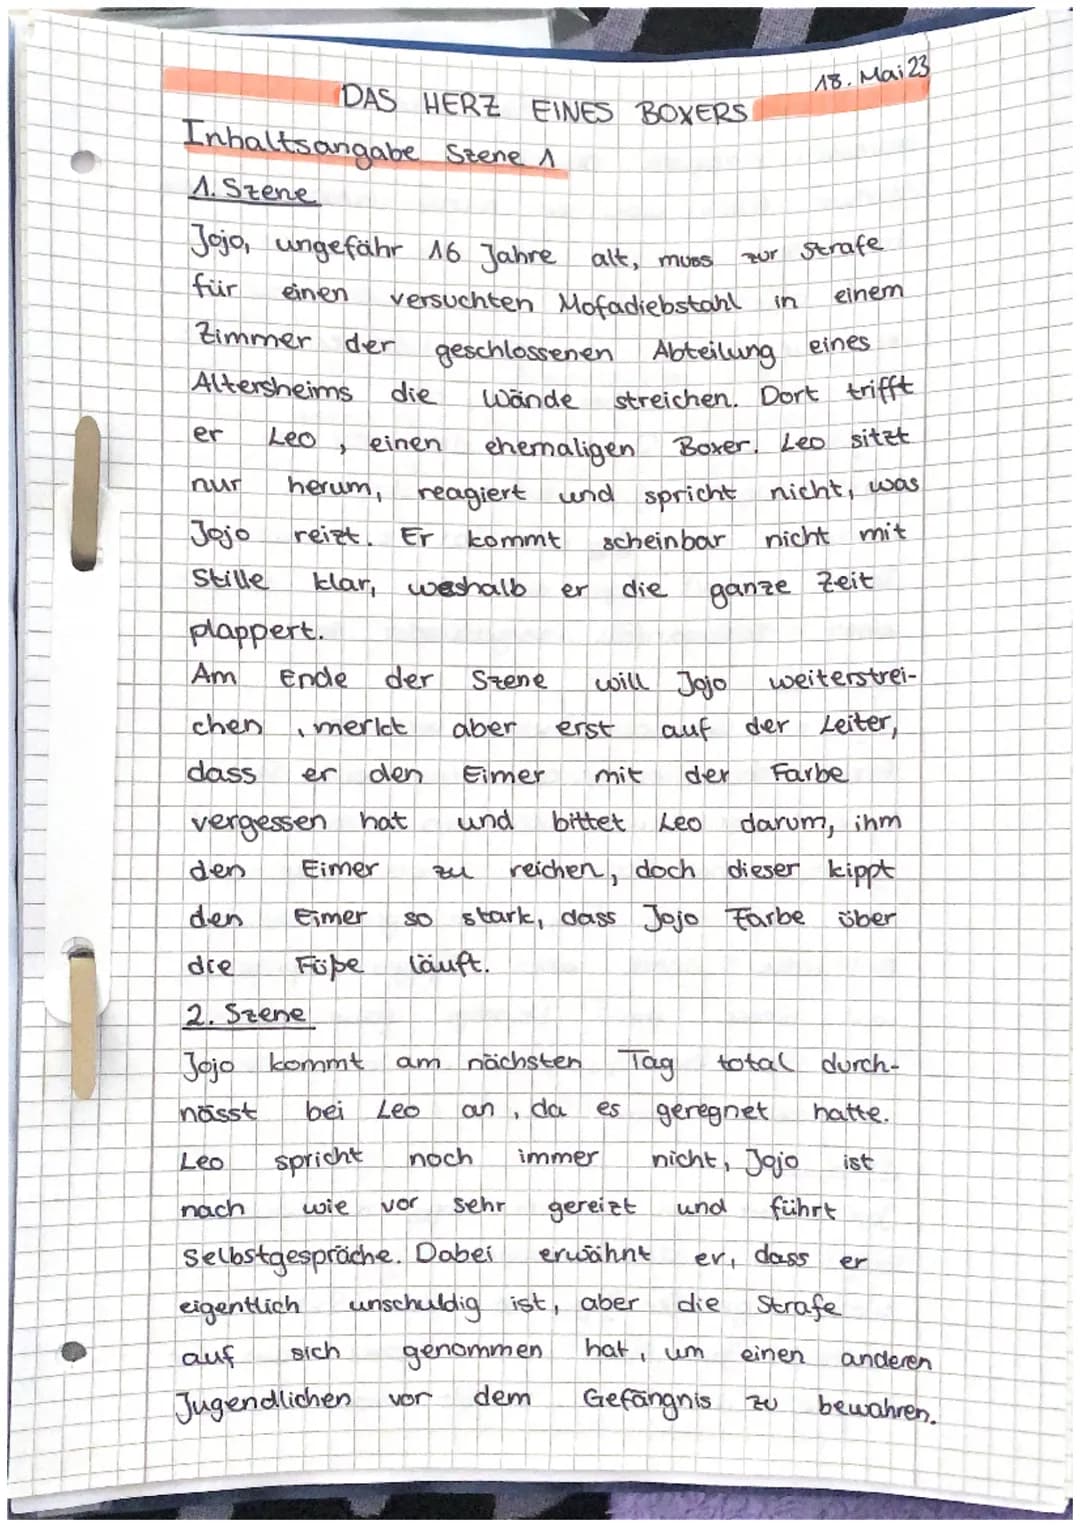 18. Mai 23
DAS HERZ EINES BOXERS
Inhaltsangabe Szene 1
1. Szene
Jojo, ungefähr 16 Jahre alt, muss zur Strafe
für einen versuchten Mofadiebstahl in einem
Zimmer der geschlossenen Abteilung eines
Altersheims die Wände streichen. Dort trifft
er Leo, einen ehemaligen Boxer. Leo sitzt
nur herum, reagiert und spricht nicht, was
Jojo reizt. Er kommt scheinbar nicht mit
Stille klar, weshalb er die ganze Zeit
plappert.
Am Ende der Szene will Jojo weiterstrei-
chen, merkt aber erst auf der Leiter,
dass er den Eimer mit der Farbe
vergessen hat und bittet Leo darum, ihm
den Eimer zu reichen, doch dieser kippt
den Eimer so stark, dass Jojo Farbe über
die Füße läuft.
2. Szene
Jojo kommt am nächsten Tag total durch-
nässt bei Leo an, da es geregnet hatte.
Leo spricht noch immer nicht, Jojo ist
nach wie vor sehr gereizt und führt
Selbstgespräche. Dabei erwähnt er, dass er
eigentlich unschuldig ist, aber die Strafe
auf sich genommen hat, um einen anderen
Jugendlichen vor dem Gefängnis zu bewahren.